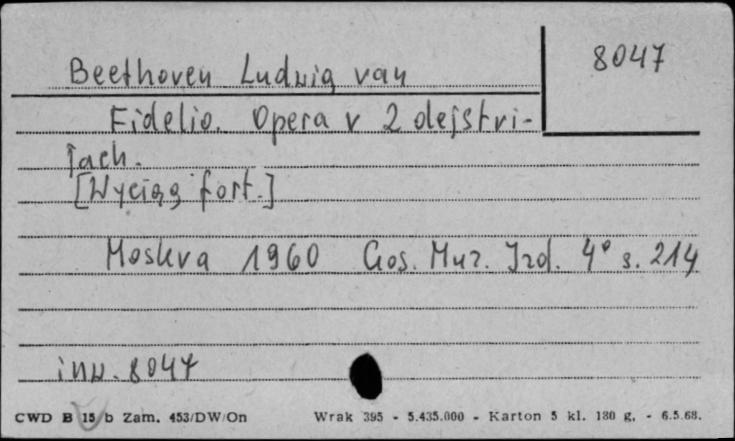 8047
Beethoven Ludwig van
Fidelio. Opera v 2 dejstvi-
jach.
[Wyciąg fort.]
Moskva 1960 Gos. Muz. Izd. 4° s. 214
inw. 8047
CWD B 15 b Zam. 453/DW/On Wrak 395 - 5.435.000 - Karton 5 kl. 180 g. - 6.5.68.